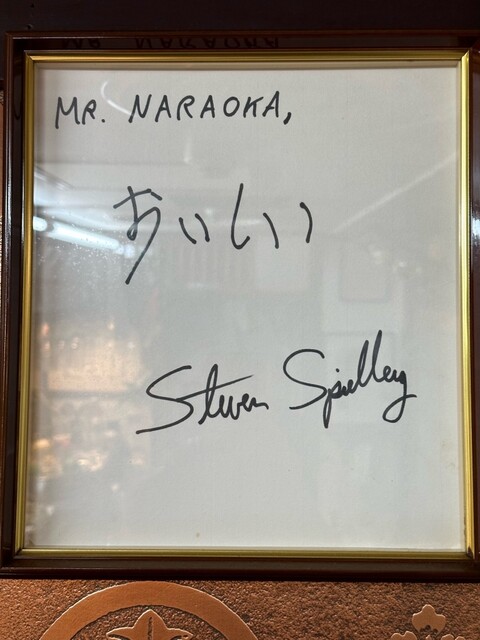 MR. NARAOKA,
おいしい
Steven Spielberg